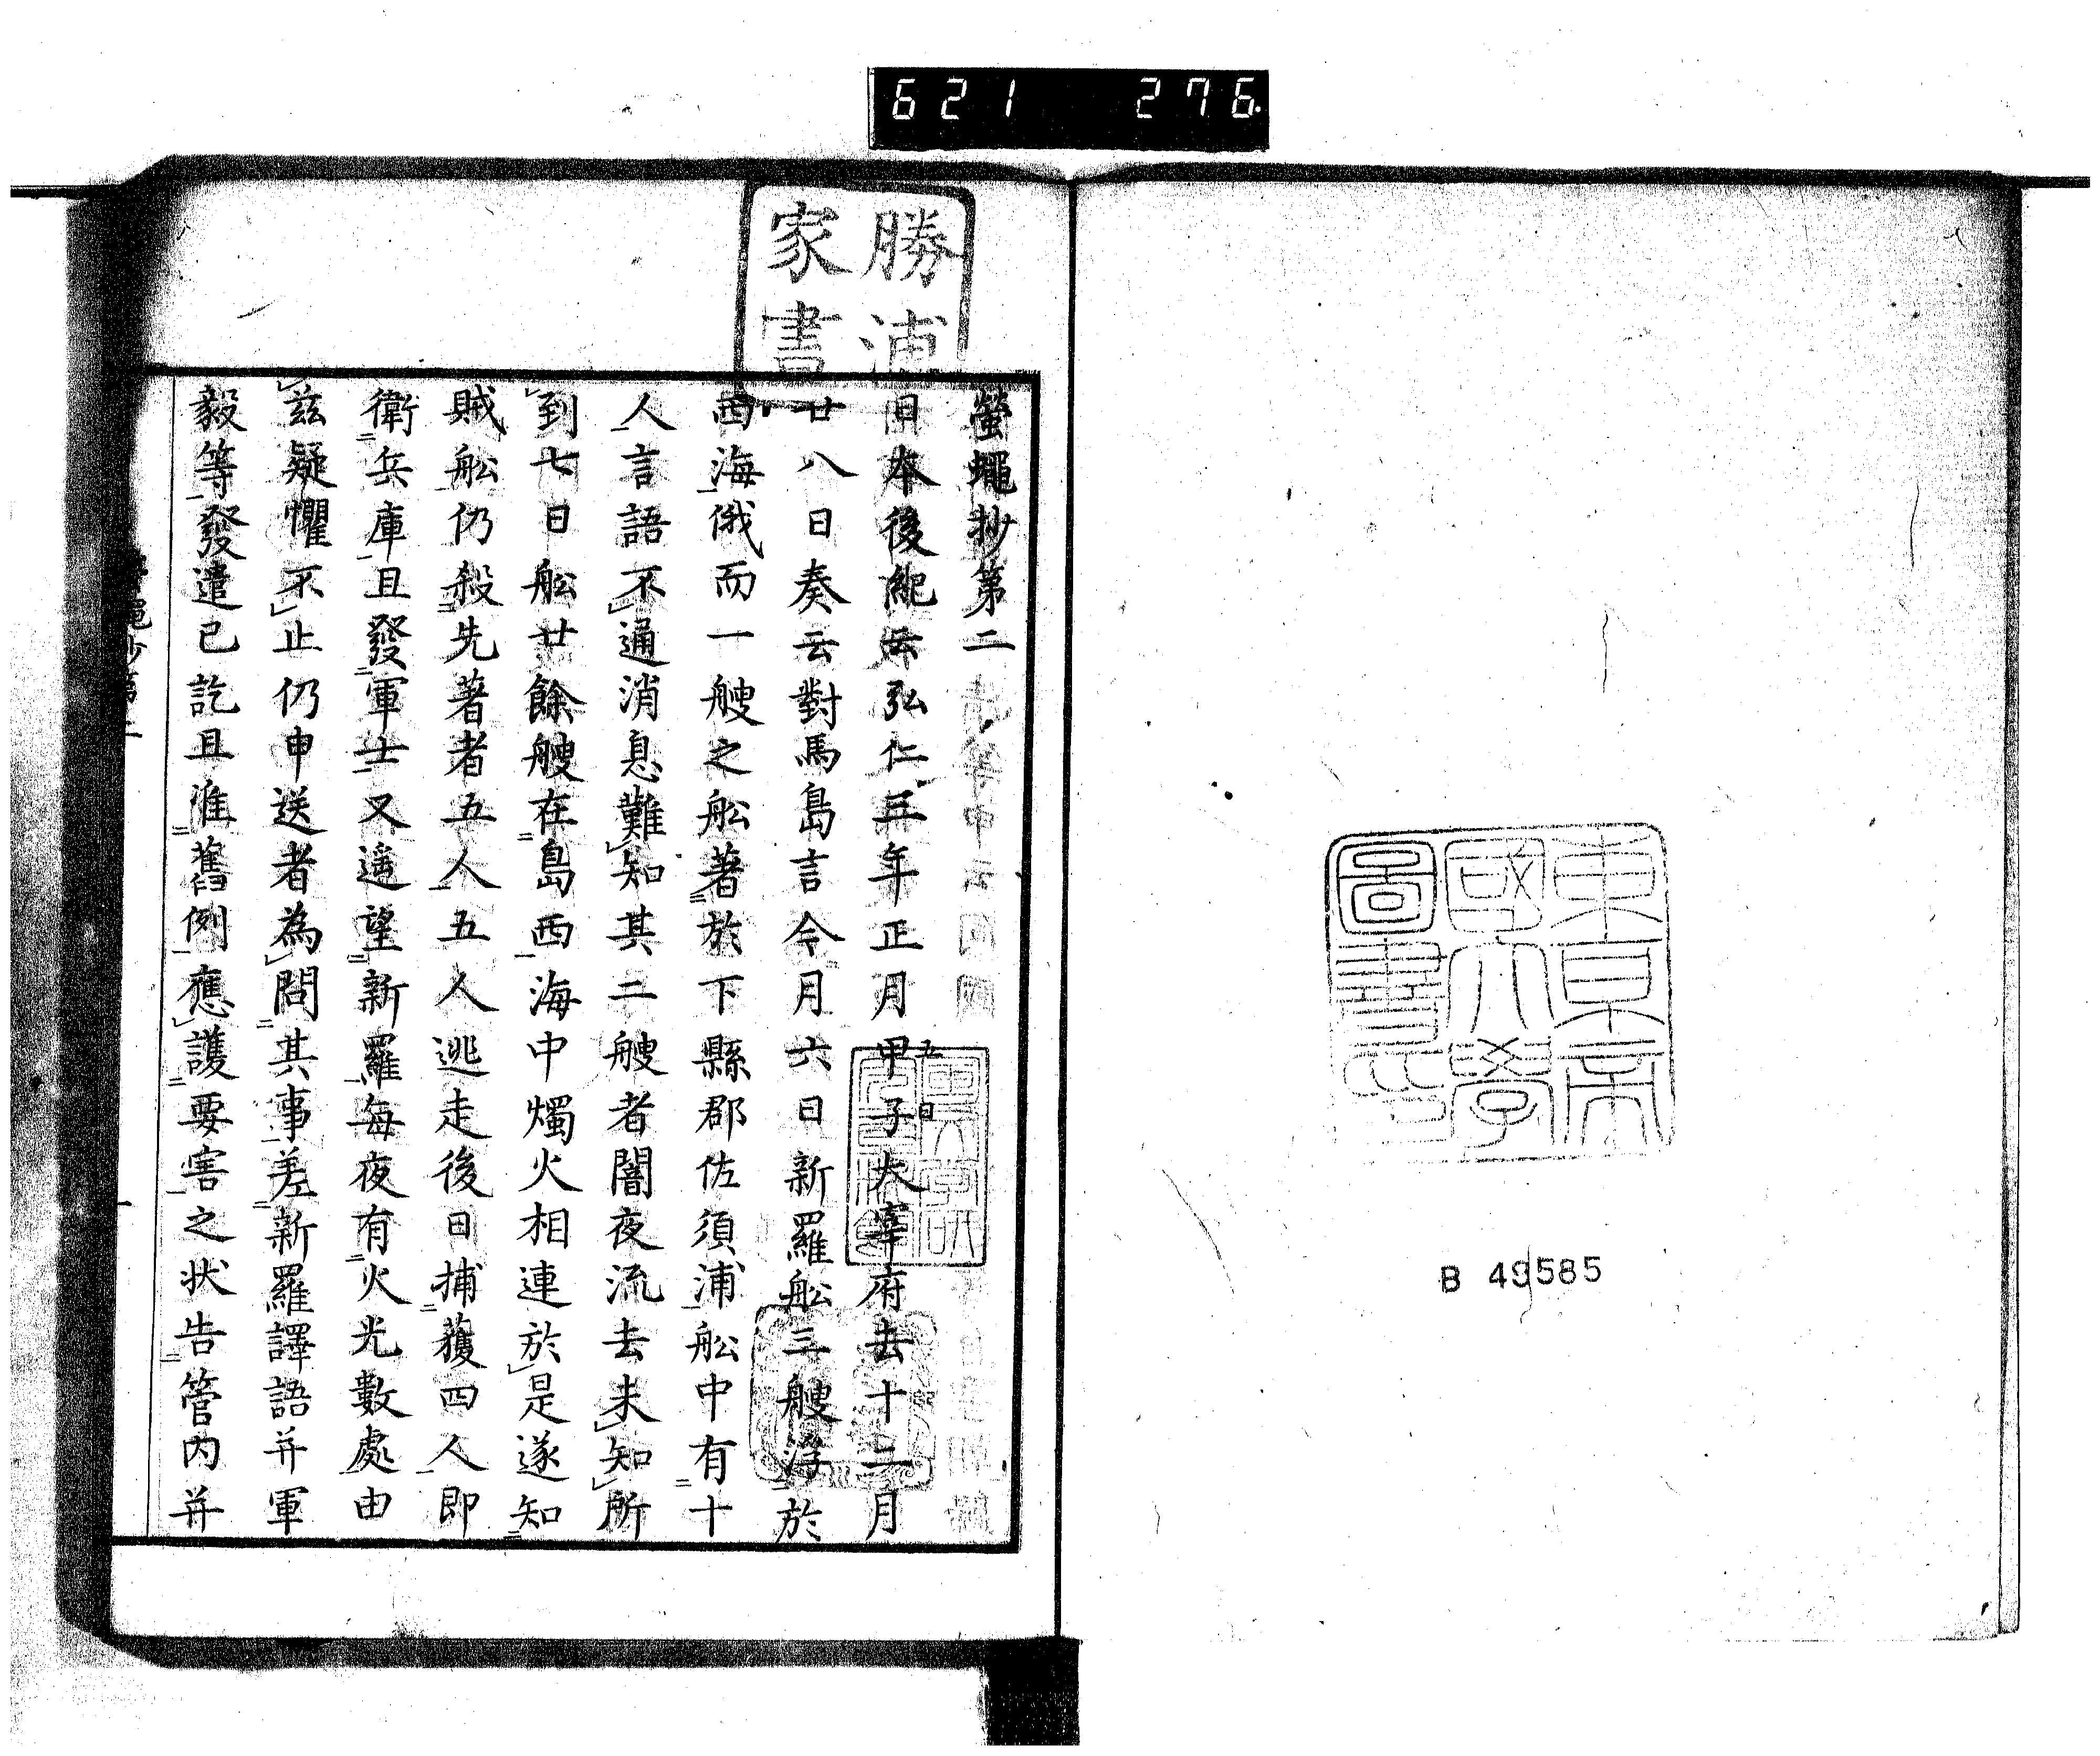 621 276
東京帝
國大學
圖書印
B 49585
勝浦
家書
螢蠅抄第二
日本後紀云弘仁三年正月甲子五日大宰府去十二月
廿八日奏云對馬島言今月六日新羅舩三艘浮於
西海俄而一艘之舩著於下縣郡佐須浦舩中有十
人言語不通消息難知其二艘者闇夜流去未知所
到七日舩廿餘艘在島西海中燭火相連於是遂知
賊舩仍殺先著者五人五人逃走後日捕獲四人即
衛兵庫且發軍士又遥望新羅每夜有火光數處由
茲疑懼不止仍申送者為問其事差新羅譯語并軍
毅等發遣已訖且准舊例應護要害之状告管内并